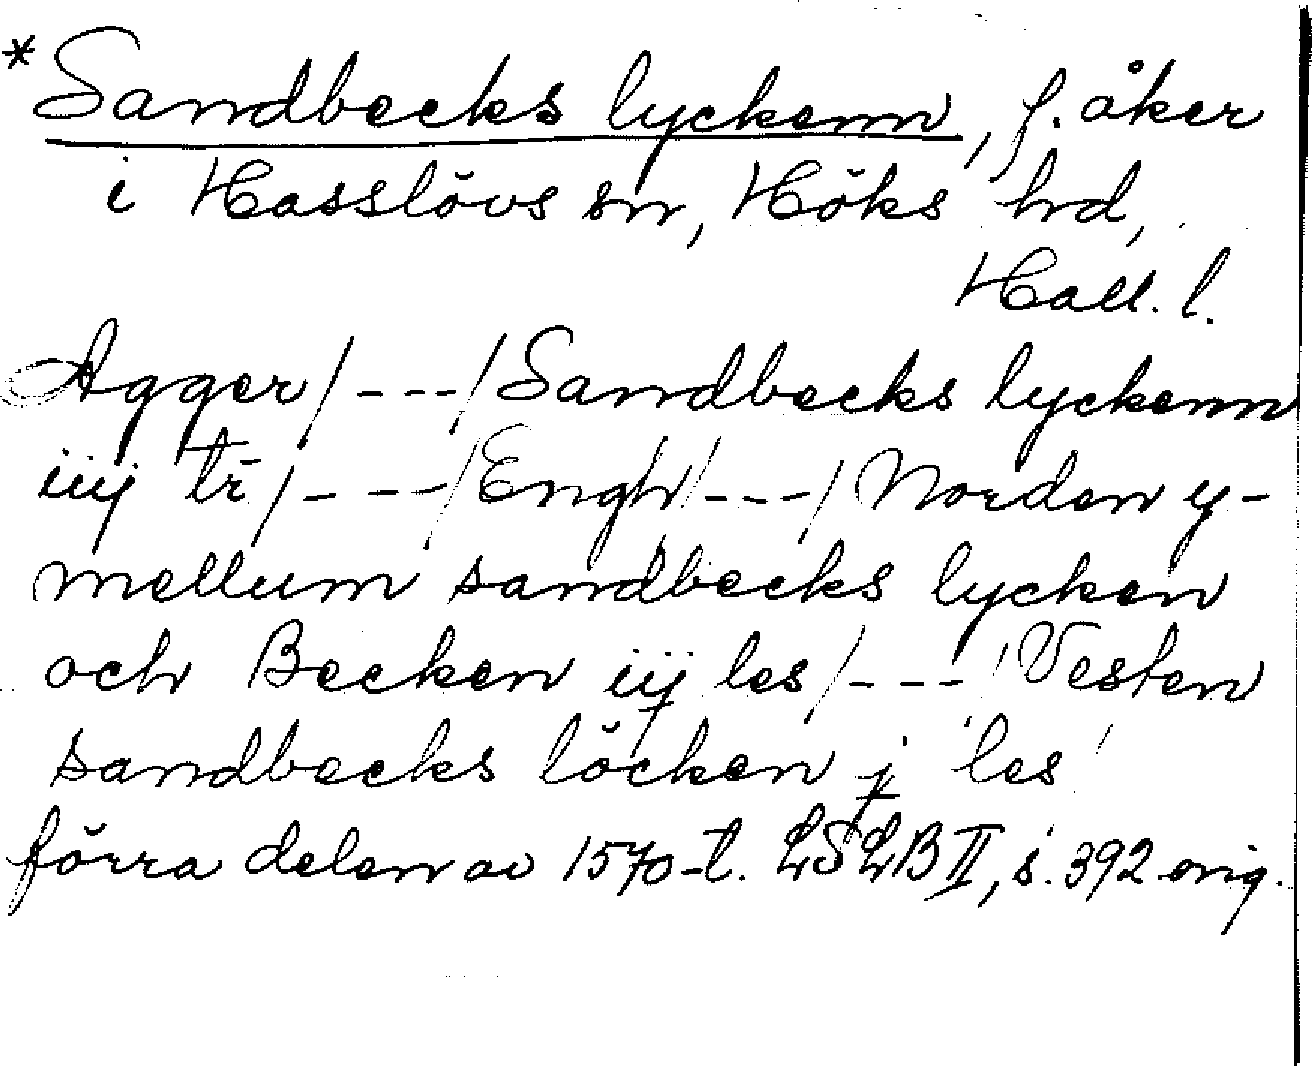 *Sandbecks lyckenn, f. åker
i Hasslövs sn, Höks hd,
Hall. l.
Agger/---/Sandbecks lyckenn
iiij tr̄/---/Engh/---/Norden y-
mellum sandbecks lycken
och Becken iij les/---/Vesten
sandbecks löcken j les
förra delen av 1570-t. LSLB II, s. 392 orig.